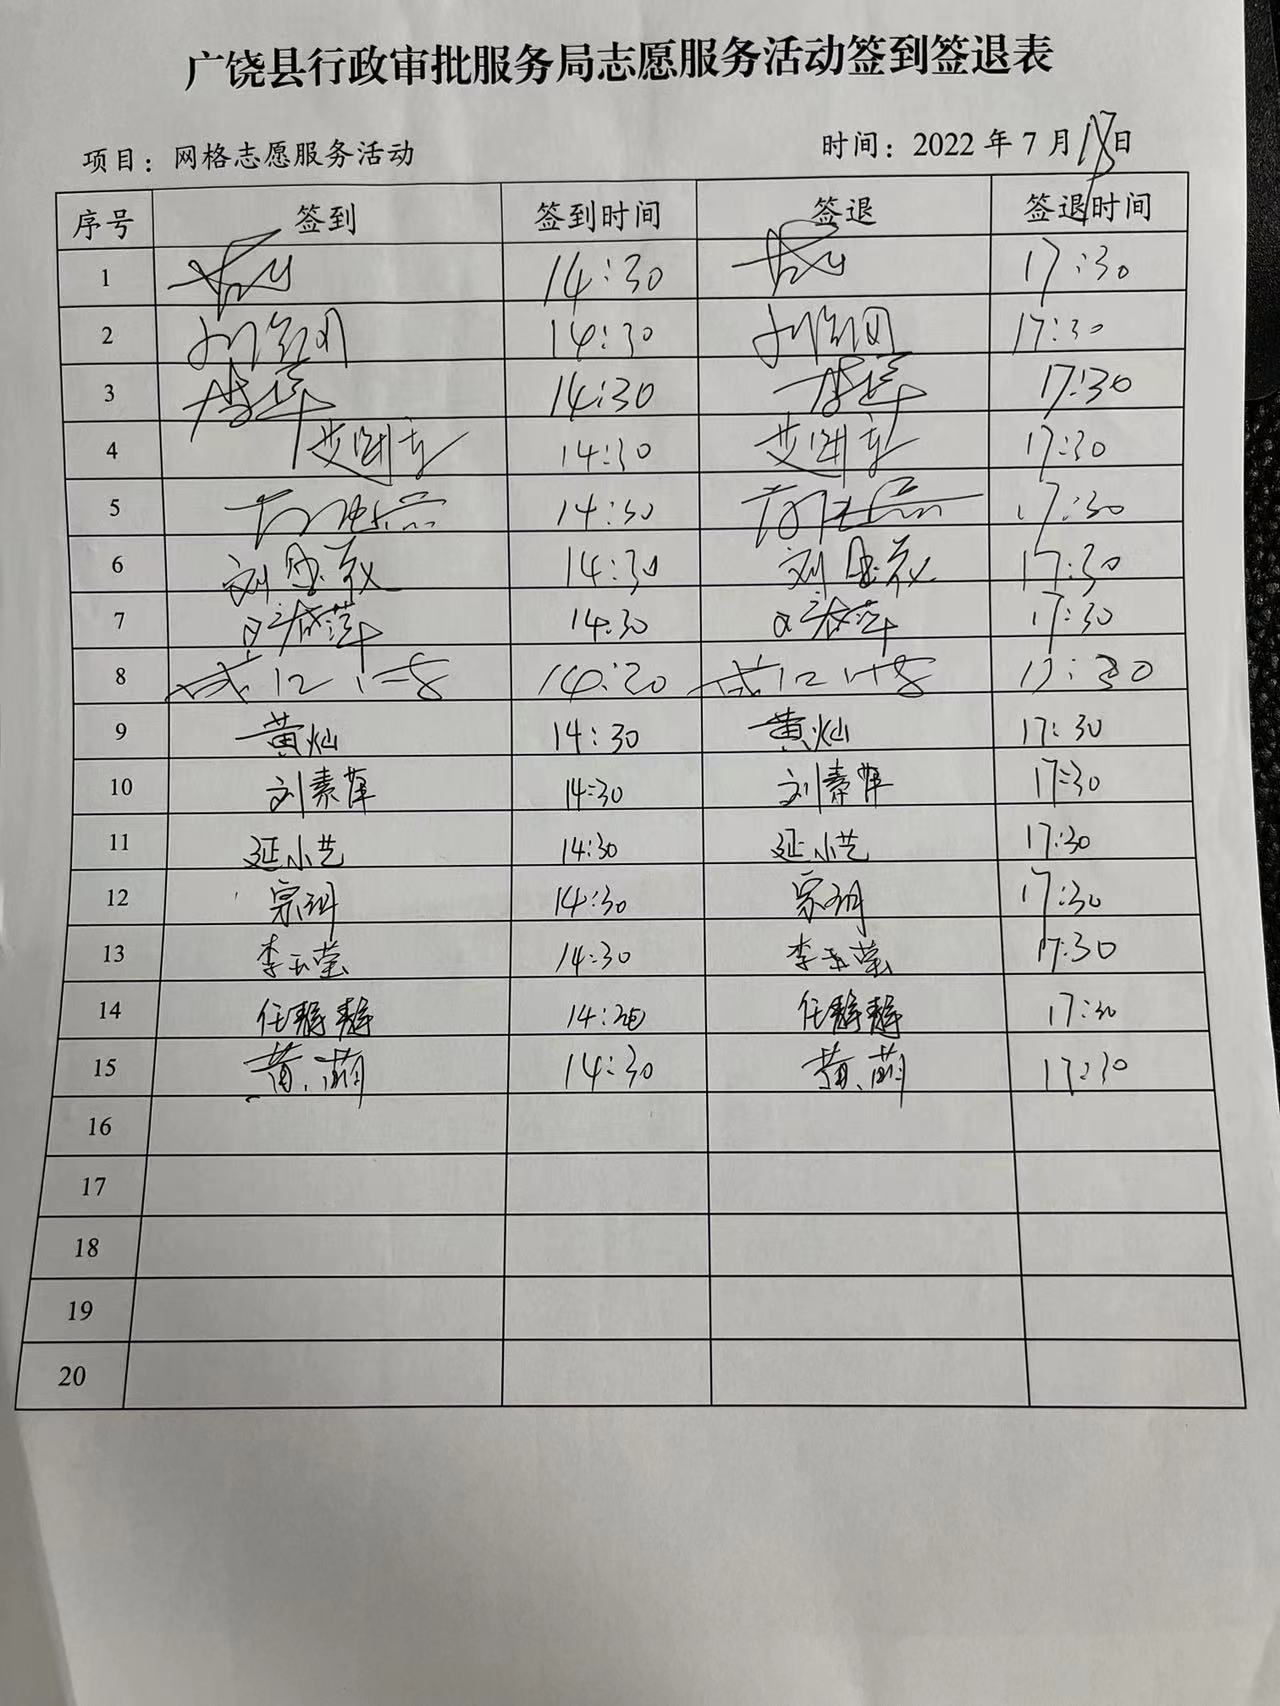 广饶县行政审批服务局志愿服务活动签到签退表
项目：网格志愿服务活动 时间：2022 年 7 月18日
序号 签到 签到时间 签退 签退时间
1 14:30 17:30
2 14:30 17:30
3 14:30 17:30
4 14:30 17:30
5 14:30 17:30
6 14:30 17:30
7 14:30 17:30
8 17:30
9 黄灿 14:30 黄灿 17:30
10 刘素萍 14:30 刘素萍 17:30
11 延小艺 14:30 延小艺 17:30
12 宗玥 14:30 宗玥 17:30
13 李玉莹 14:30 李玉莹 17:30
14 任静静 14:30 任静静 17:30
15 黄萌 14:30 黄萌 17:30
16
17
18
19
20